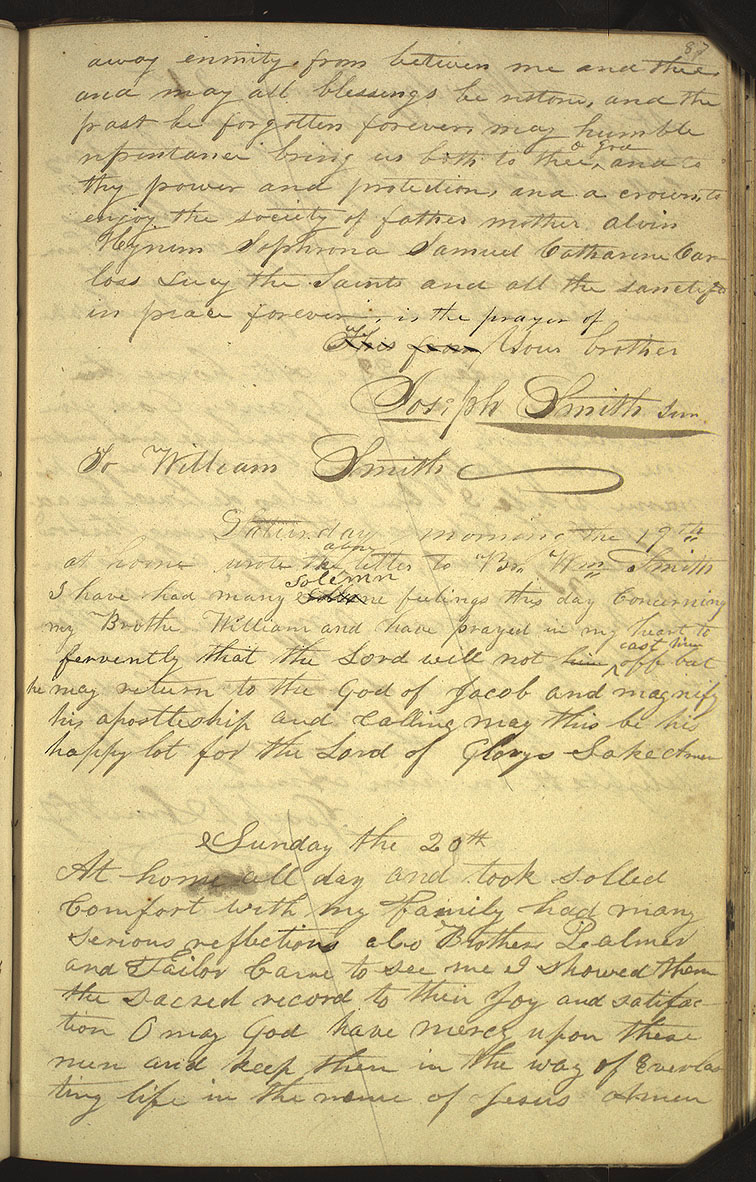 87
away enmity from between me and thee
and may all blessings be restored, and the
past be forgotten forever, may humble
repentance bring us both to thee, ^o God^ and to
thy power and protection, and a crown, to
enjoy the society of father mother Alvin
Hyrum Sophrona Samuel Catharine Car-
loss Lucy the Saints and all the sanctified
in peace forever, is the prayer of
This from Your brother
Joseph Smith Jun
To William Smith
Saturday morning the 19th
at home wrote the ^above^ letter to Br. Wm Smith
I have had many ^solemn^ feelings this day Concerning
my Brothe William and have prayed in my heart to
fervently that the Lord will not him ^cast him^ off but
he may return to the God of Jacob and magnify
his apostleship and calling may this be his
happy lot for the Lord of Glorys Sake Amen
Sunday the 20th
At home all day and took solled
Comfort with my Family had many
serious reflections also Brothers Palmer
and Tailor Came to see me I showed them
the sacred record to their Joy and satifac-
tion O may God have mercy upon these
men and keep them in the way of Everlas
ting life in the name of Jesus Amen